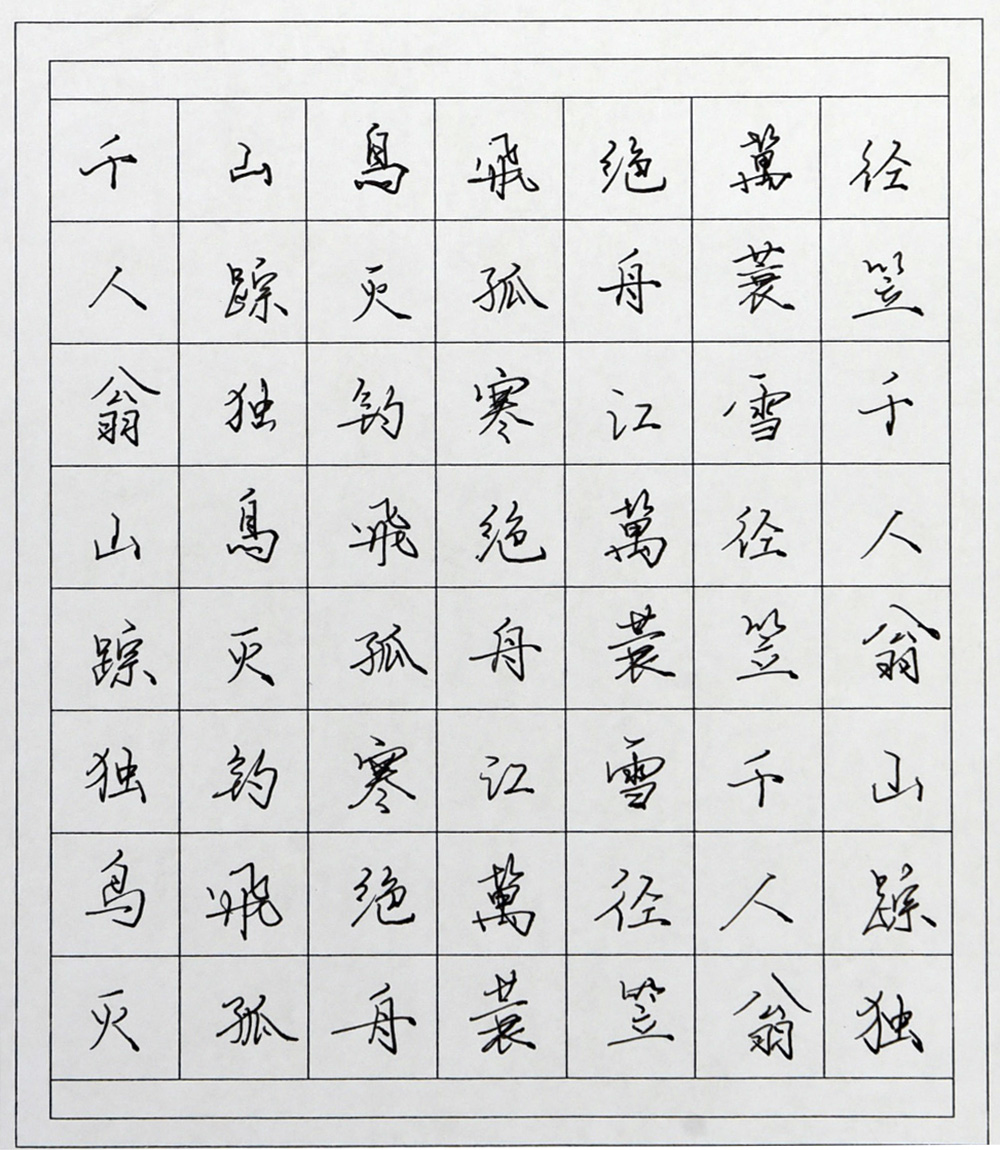 千山鳥飛绝萬径
人踪灭孤舟蓑笠
翁独钓寒江雪千
山鳥飛绝萬径人
踪灭孤舟蓑笠翁
独钓寒江雪千山
鳥飛绝萬径人踪
灭孤舟蓑笠翁独